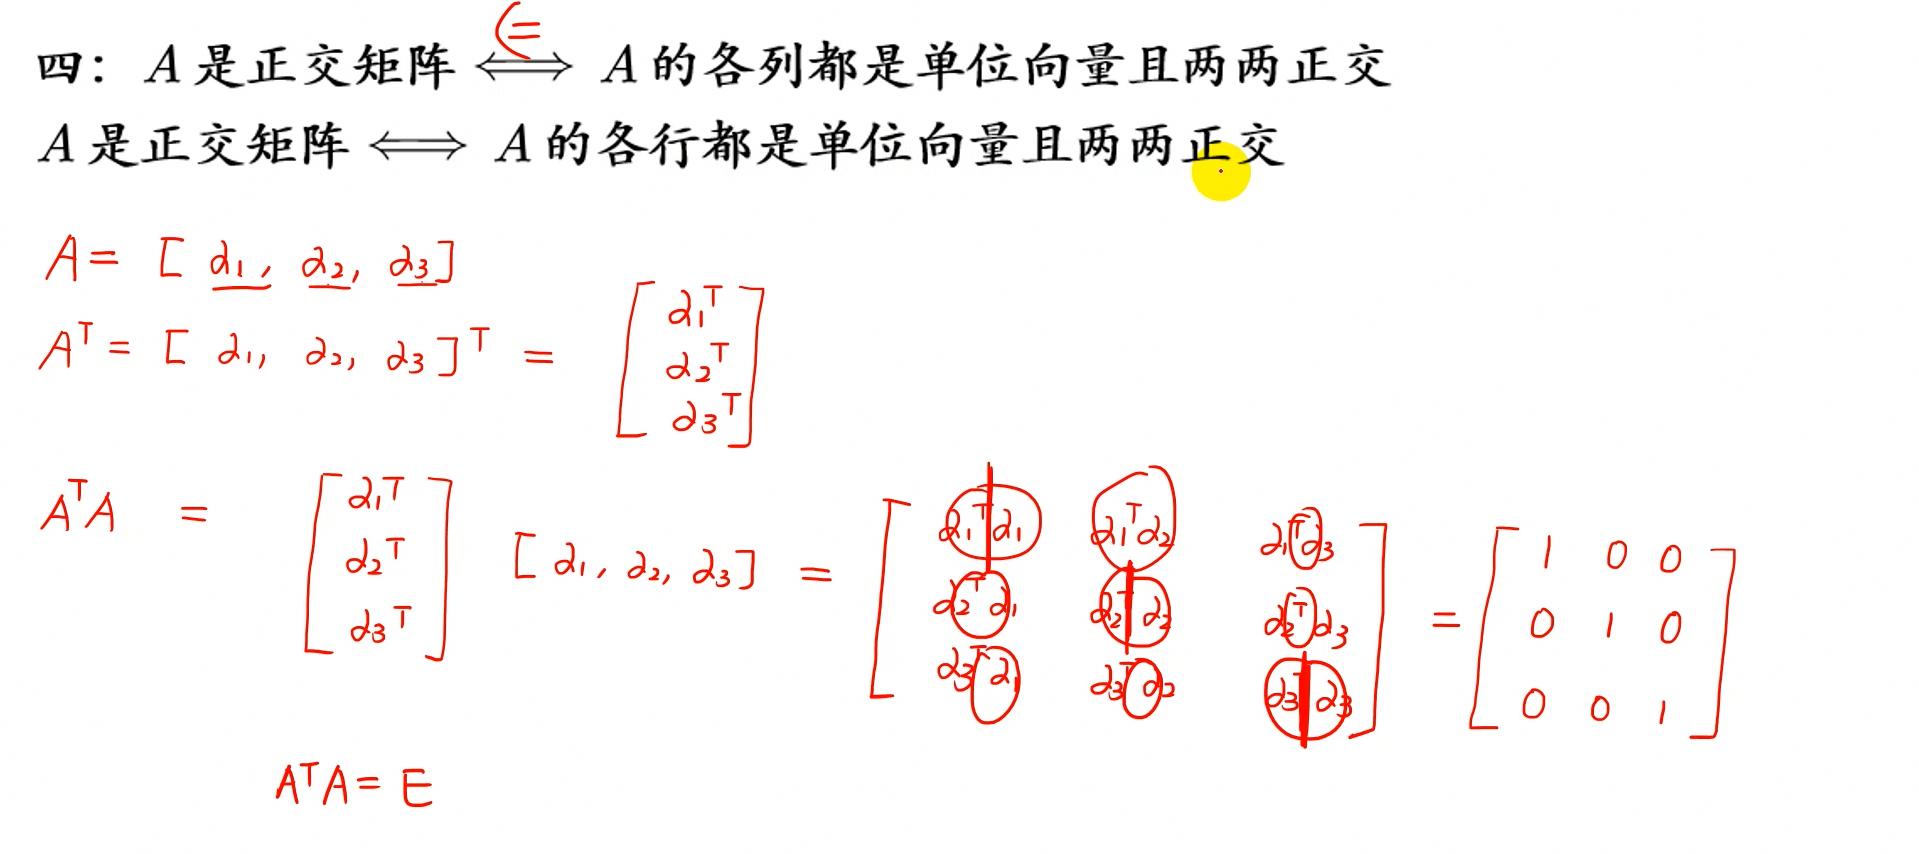 ⇐
四：A 是正交矩阵 ⟺ A 的各列都是单位向量且两两正交
A 是正交矩阵 ⟺ A 的各行都是单位向量且两两正交
A = [ α₁, α₂, α₃ ]
Aᵀ = [ α₁, α₂, α₃ ]ᵀ = [ α₁ᵀ
α₂ᵀ
α₃ᵀ ]
AᵀA = [ α₁ᵀ
α₂ᵀ
α₃ᵀ ] [ α₁, α₂, α₃ ] = [ α₁ᵀα₁ α₁ᵀα₂ α₁ᵀα₃
α₂ᵀα₁ α₂ᵀα₂ α₂ᵀα₃
α₃ᵀα₁ α₃ᵀα₂ α₃ᵀα₃ ] = [ 1 0 0
0 1 0
0 0 1 ]
AᵀA = E